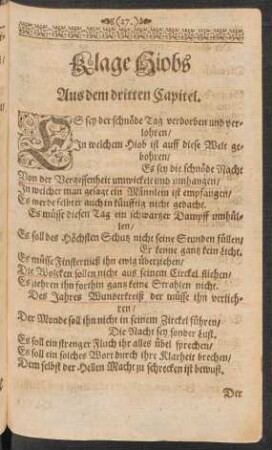 (27.)
Klage Hiobs
Aus dem dritten Capitel.
ES sey der schnöde Tag verdorben und ver-
lohren/
In welchem Hiob ist auff diese Welt ge-
bohren/
Es sey die schnöde Nacht
Von der Vergessenheit umwickelt und umhangen/
In welcher man gesagt ein Männlein ist empfangen/
Es werde selbter auch in künfftig nicht gedacht.
Es müsse diesen Tag ein schwarger Dampff umhül-
len/
Es soll des Höchsten Schutz nicht seine Stunden füllen/
Er kenne gantz kein Licht.
Es müsse Finsterniß ihn ewig überziehen/
Die Wolcken sollen nicht aus seinem Circkel fliehen/
Es nehren ihn forthin gantz keine Strahlen nicht.
Des Jahres Wunderkreiß der müsse ihn verlieh-
ren/
Der Monde soll ihn nicht in seinem Zirckel führen/
Die Nacht sey sonder Lust.
Es soll ein strenger Fluch ihr alles übel sprechen/
Es soll ein solches Wort durch ihre Klarheit brechen/
Dem selbst der Hellen Macht zu schrecken ist bewust.
Der